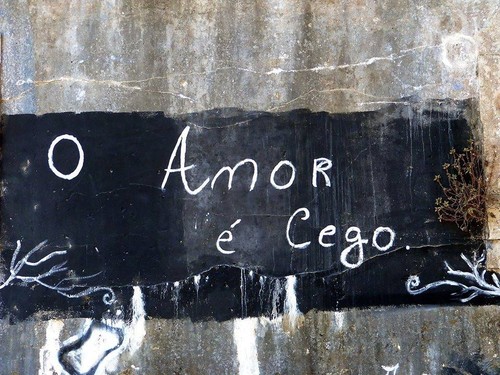 O Amor
é Cego.